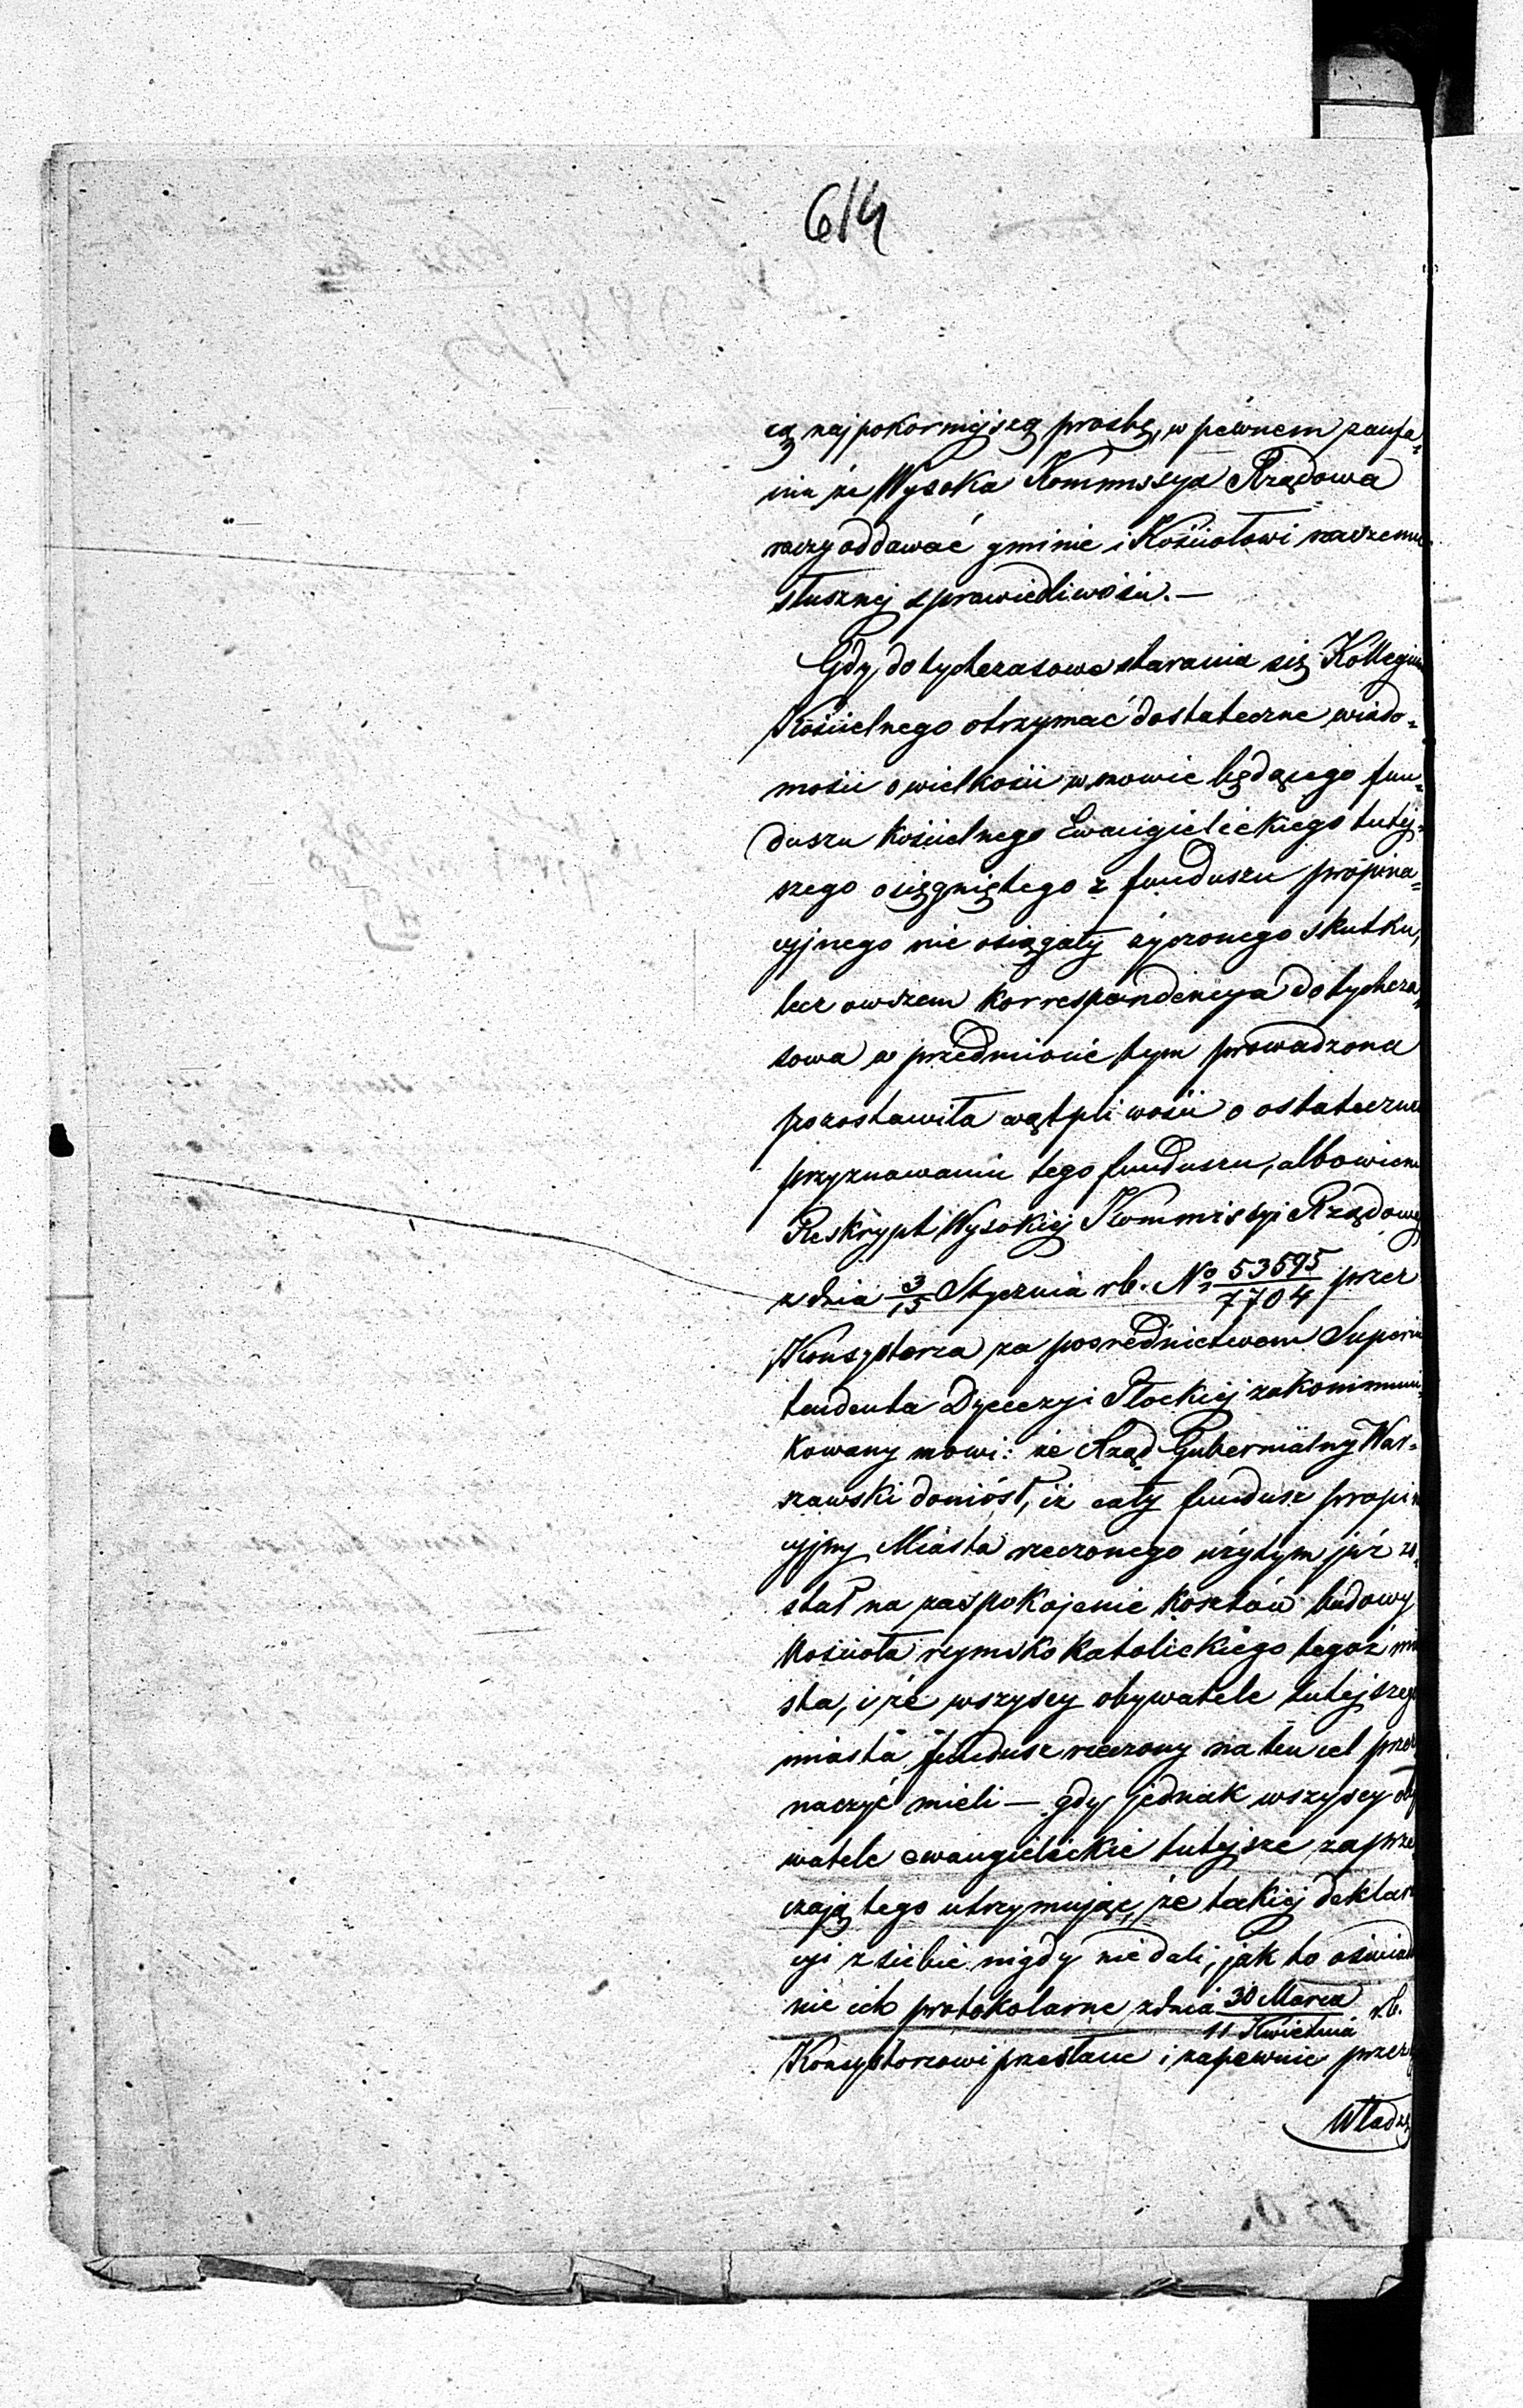 614
cą najpokorniejszą prosbę, w pewnem zaufa-
niu że Wysoka Kommissya Rządowa
raczy oddawać gminie i Kościołowi naszemu
słusznej sprawiedliwości. —
Gdy dotychczasowe starania się Kollegium
Kościelnego otrzymać dostateczne wiado-
mości o wielkości w mowie będącego fun-
duszu kościelnego Ewangielickiego tutej-
szego osięgniętego z funduszu propina-
cyjnego nie osiągały życzonego skutku,
lecz owszem korrespondencya dotychcza-
sowa w przedmiocie tym prowadzona
pozostawiła wątpliwości o ostateczne
przyznawaniu tego funduszu, albowiem
Reskrypt Wysokiej Kommissyi Rządowej
z dnia 3/15 Stycznia rb. No 53595/7704 przez
Konsystorza za pośrednictwem Superin
tendenta Dyecezyi Płockiej zakommuni-
kowany mowi: że Rząd Gubernialny War-
szawski doniósł, iż cały fundusz propin
cyjny Miasta rzeczonego użytym już zo-
stał na zaspokojenie kosztów budowy
Kościoła rzymsko katolickiego tegoż mia
sta, i że wszyscy obywatele tutejszego
miasta fundusz rzeczony na ten cel prze
naczyć mieli — gdy jednak wszyscy oby
watele ewangielickie tutejsze zaprze
czają tego utrzymując, że takiej deklara
cyi z siebie nigdy nie dali, jak to oświad
nie ich protokolarne z dnia 30 Marca/11 Kwietnia rb.
Konsystorzowi przesłane i zapewnie przez
Władzę
150.